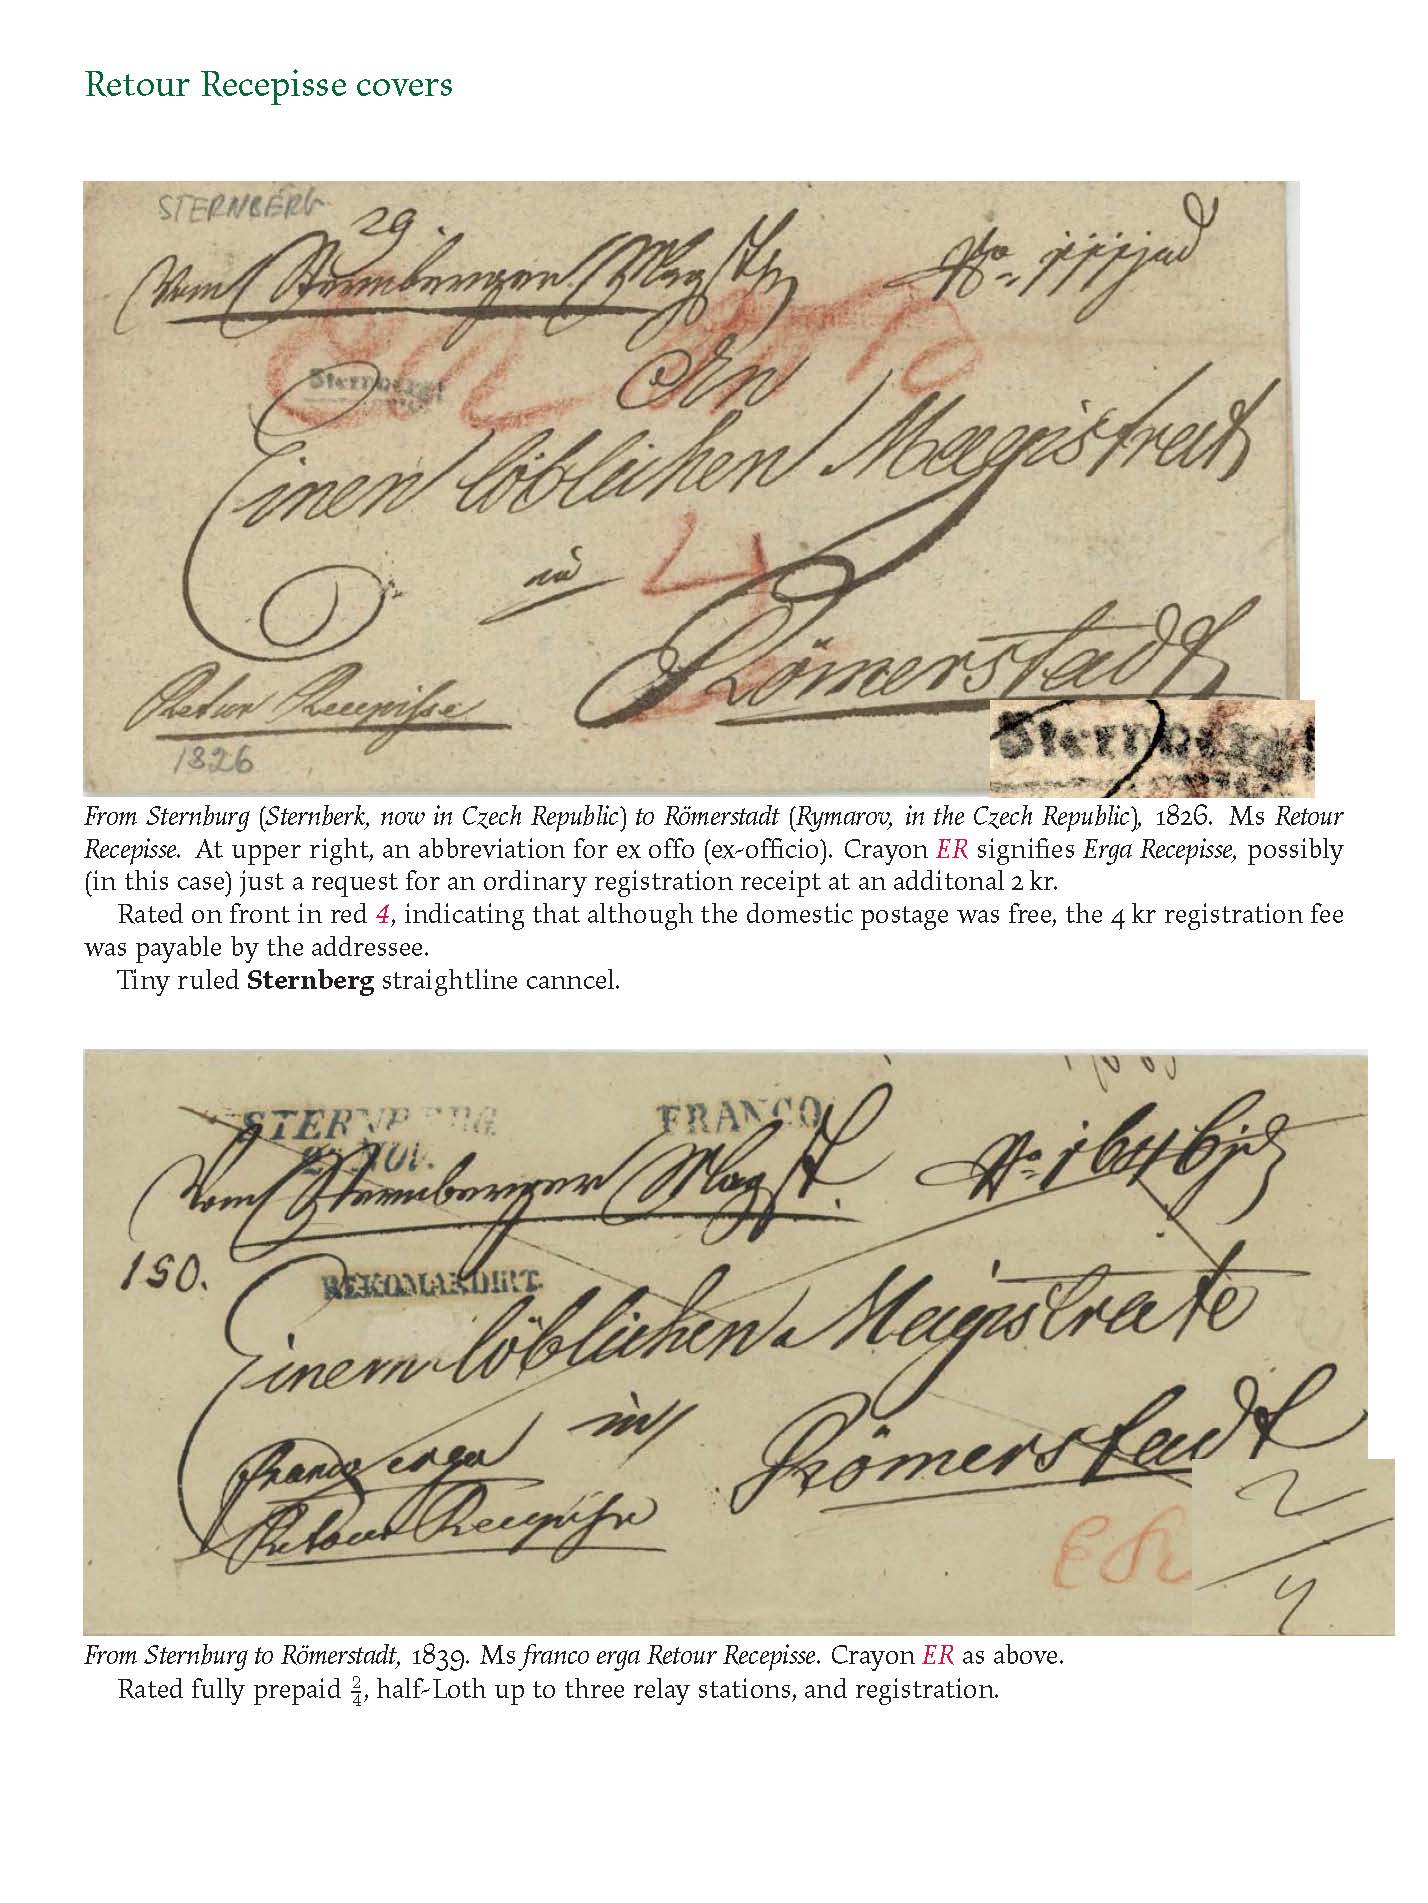 Retour Recepisse covers
STERNBERG
29.
Vom Sternberger Mag
Sternberg
An
Einen löblichen Magistrat
zu
4
Römerstadt
Retour Recepisse
1826
Sternberg
From Sternburg (Sternberk, now in Czech Republic) to Römerstadt (Rymarov, in the Czech Republic), 1826. Ms Retour
Recepisse. At upper right, an abbreviation for ex offo (ex-officio). Crayon ER signifies Erga Recepisse, possibly
(in this case) just a request for an ordinary registration receipt at an additonal 2 kr.
Rated on front in red 4, indicating that although the domestic postage was free, the 4 kr registration fee
was payable by the addressee.
Tiny ruled Sternberg straightline canncel.
STERNBERG FRANCO
NOV.
Vom Sternberger Magst. No 1646
150.
REKOMANDIRT.
Einem löblichen Magistrate
in
Römerstadt
franco erga
Retour Recepisse
ER
2
4
From Sternburg to Römerstadt, 1839. Ms franco erga Retour Recepisse. Crayon ER as above.
Rated fully prepaid 2/4, half-Loth up to three relay stations, and registration.